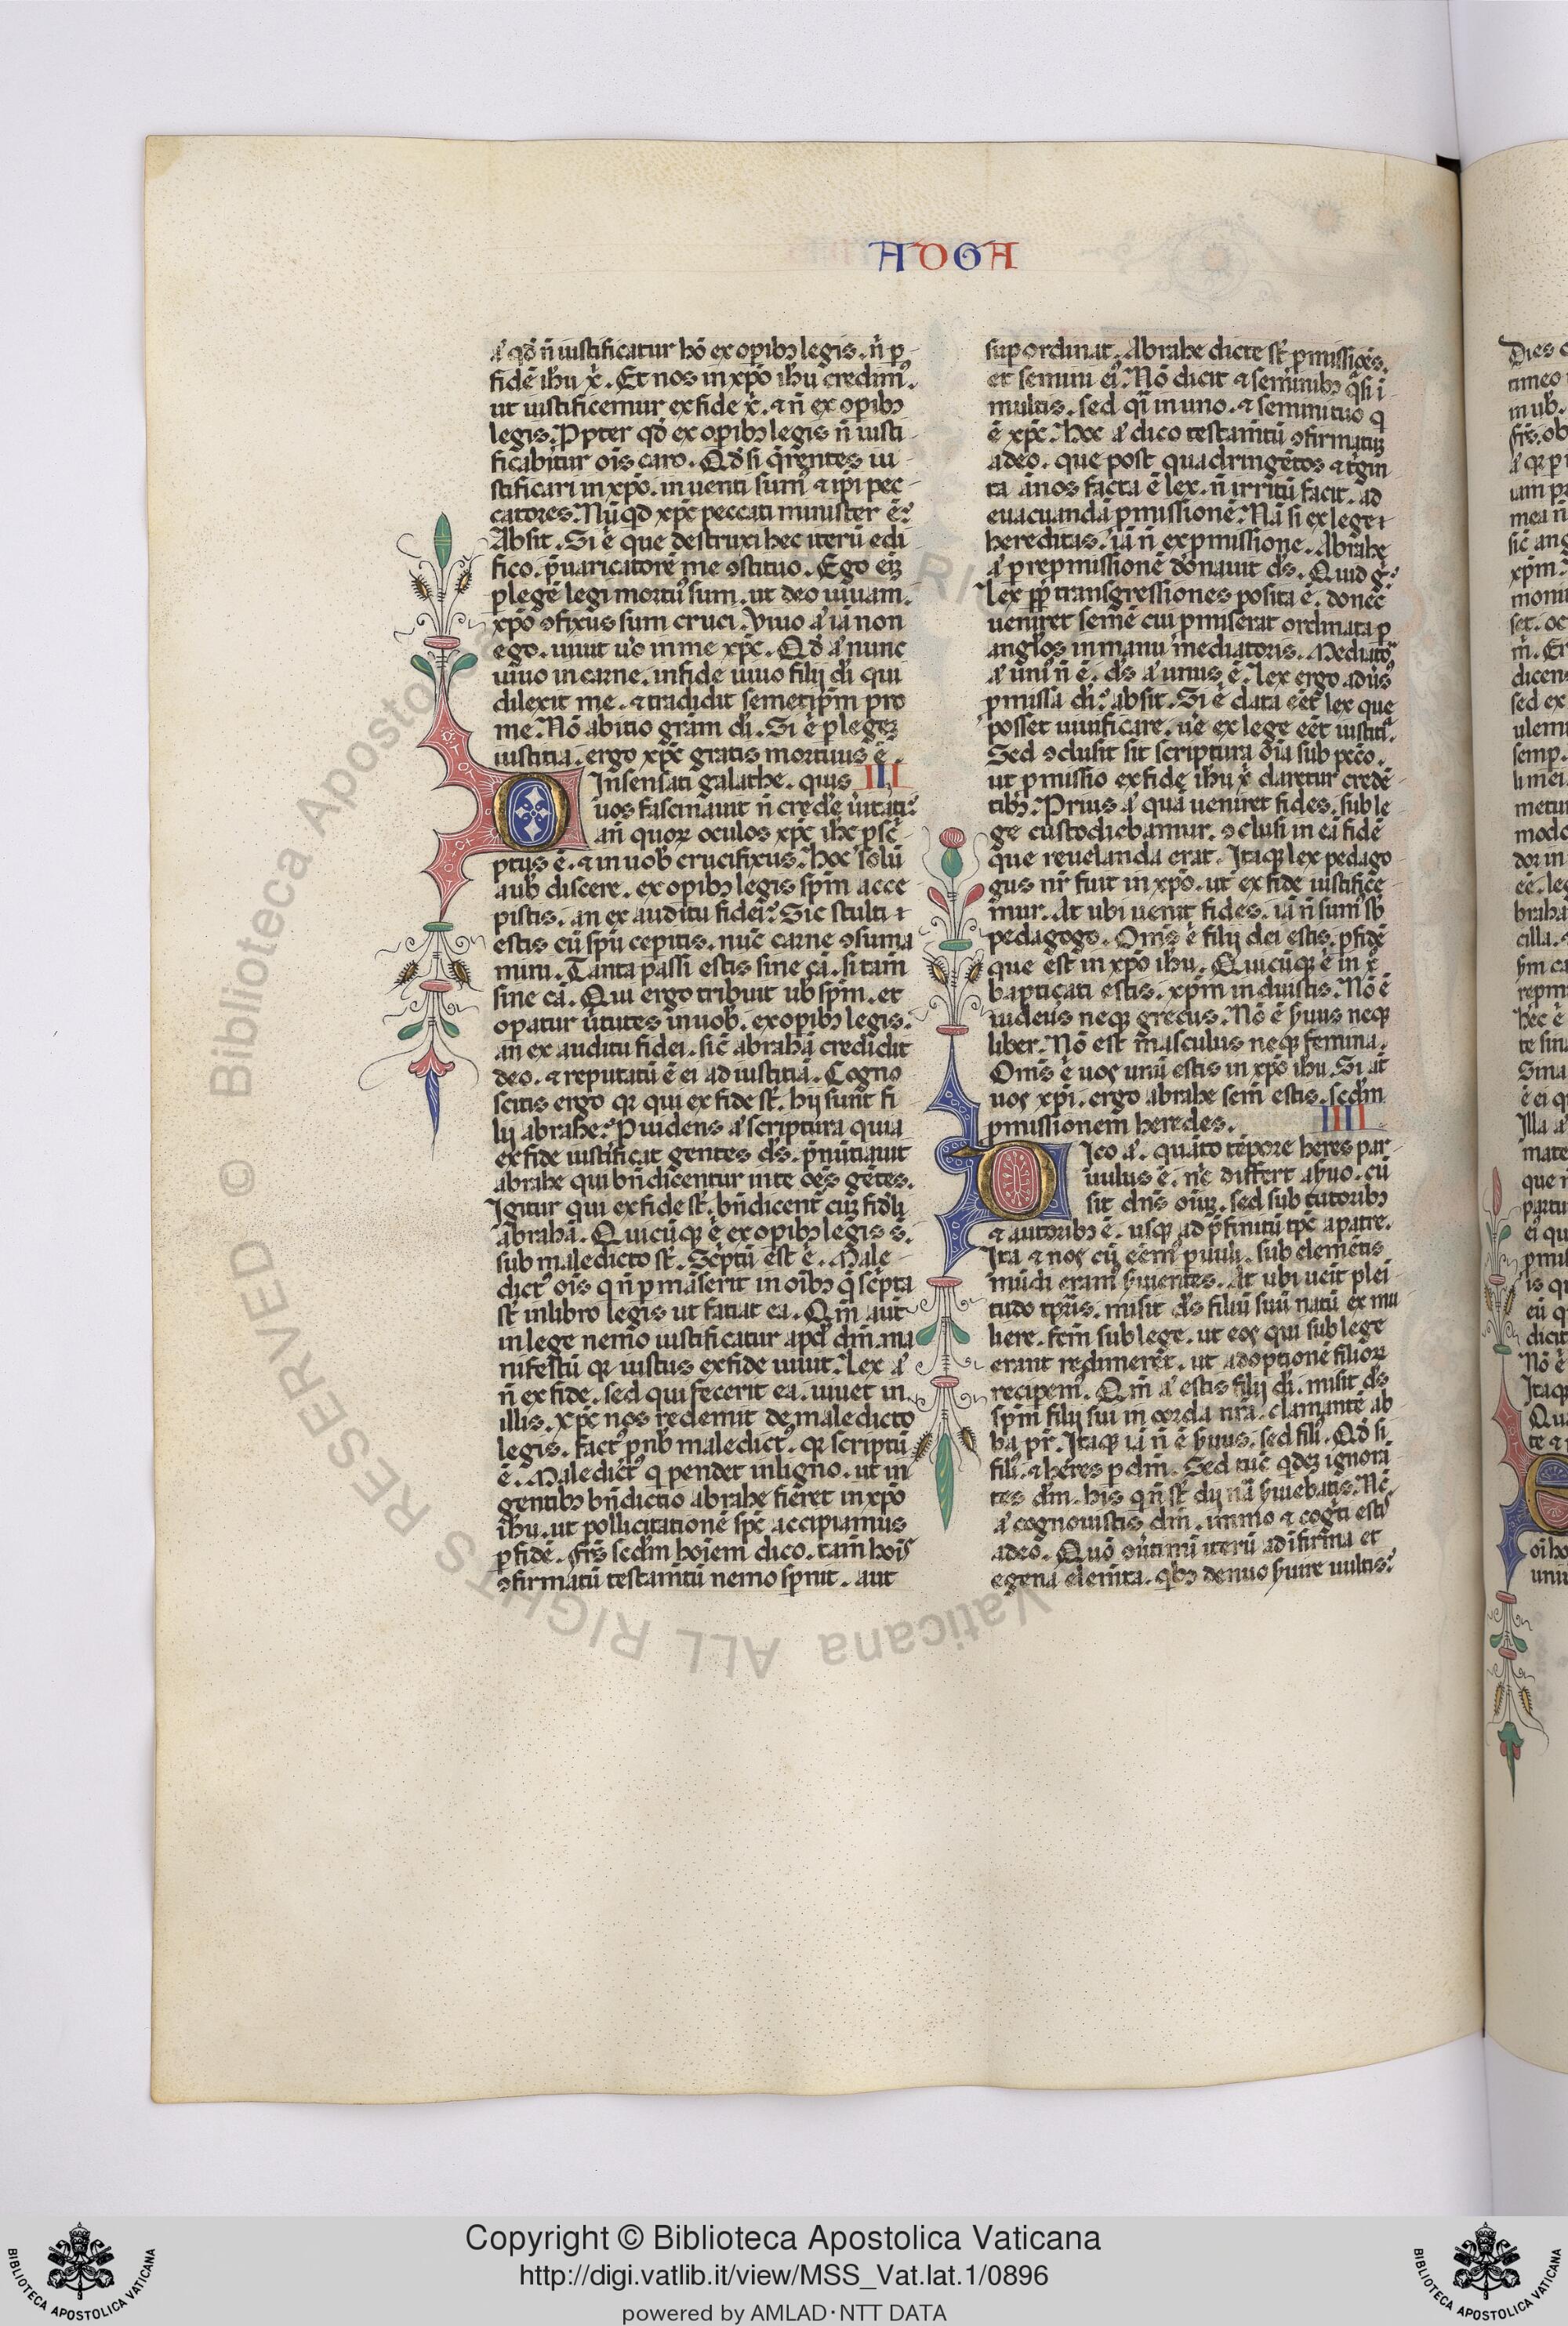 ADGA
a᷎ qd̄ n̄ iustificatur hō ex opibꝫ legis. n̄ p̱
fidē ihu x̄. Et nos in xp̄o ihu credim᷒.
ut iustificemur ex fide x̄. ⁊ n̄ ex opibꝫ
legis. Ppter qd̄ ex opibꝫ legis n̄ iusti
ficabitur oīs caro. Qd̄ si q̄rentes iu
stificari in xp̄o. inuenti sum᷒ ⁊ ip̄i pec
catores. Nūqd xp̄c peccati minister ē?
Absit. Si .n. que destruxi hec iterū edi
fico. p̄uaricatorē me ꝯstituo. Ego eīꝫ
p legē legi mortu᷒ sum. ut deo uiuam.
xp̄o ꝯfixus sum cruci. Viuo a᷎ iā non
ego. uiuit u̾o in me xp̄c. Qd̄ a᷎ nunc
uiuo in carne. in fide uiuo filij di̾ qui
dilexit me. ⁊ tradidit semetip̄m pro
me. Nō abitio gr̄am di̾. Si .n. p legeꝫ
iustitia. ergo xp̄c gratis mortuus ē.
O Insensati galathe. quis III
uos fascinauit n̄ cred̾e u̾itati?
an̄ quoꝝ oculos xp̄c ihc̄ p̱sc̄
ptus ē. ⁊ in uob̾ crucifixus. Hoc solū
a uob̾ discere. ex opibꝫ legis sp̄m acce
pistis. an ex auditu fidei? Sic stulti
estis cū sp̄u cepitis. nūc carne ꝯsuma
mini. Tanta passi estis sine cā. si tam̄
sine cā. Qui ergo tribuit ub̾ sp̄m. et
opatur u̾tutes in uob̾. ex opibꝫ legis.
an ex auditu fidei. sic̄ abrahā credidit
deo. ⁊ reputatū ē ei ad iustitiā. Cogno
scitis ergo qꝛ qui ex fide st̄. hij sunt fi
lij abrahe. Puidens a᷎ scriptura quia
ex fide iustificat gentes ds̄. p̄nūtiauit
abrahe qui bn̄dicentur in te oēs gētes.
Igitur qui ex fide st̄. bn̄dicent᷒ cuꝫ fid̾li
abrahā. Quicūqꝫ .n. ex opibꝫ legis s̄.
sub maledicto st̄. Sc̾ptū est .n. Male
dict᷒ oīs q n̄ pmāserit in oībꝫ q̄ sc̾pta
st̄ in libro legis ut fatiat ea. Qm̄ aut̄
in lege nemo iustificatur apd̾ dm̄. ma
nifestū qꝛ iustus ex fide uiuit. Lex a᷎
n̄ ex fide. sed qui fecerit ea. uiuet in
illis. xp̄c nos redemit de maledicto
legis. fact᷒ p nb̾ maledict᷒. qꝛ scriptū
ē. Maledict᷒ q pendet in ligno. ut in
gentibꝫ bn̄dictio abrahe fieret in xp̄o
ihu. ut pollicitationē sp̄c accipiamus
p fidē. Frs̄ scdm hoīem dico. tam̄ hoīs
ꝯfirmatū testam̄tū nemo sp̾nit. aut
sup ordinat. Abrahe dicte st̄ pmissioēs.
et semini ei᷒. Nō dicit ⁊ seminibꝫ q̄si ī
multis. sed q̄i in uno. ⁊ semini tuo q
ē xp̄c. Hoc a᷎ dico testam̄tū ꝯfirmatuꝫ
a deo. que post quadringētos ⁊ t̾gin
ta ānos facta ē lex. n̄ irritū facit. ad
euacuandā pmissionē. Nā si ex lege
hereditas. iā n̄ ex pmissione. Abrahe
a᷎ p repmissionē donauit ds̄. Quid g̾?
Lex pp̱ transgressiones posita ē. donec
ueniret semē cui pmiserat ordinata p
ang̾los in manu mediatoris. Mediator
a᷎ uni᷒ n̄ ē. ds̄ a᷎ unus ē. Lex ergo adu̾s᷒
pmissa di̾? absit. Si .n. data eēt lex que
posset uiuificare. u̾e ex lege eēt iustiti᷎.
Sed ꝯclusit sit scriptura oīa sub pcc̄o.
ut pmissio ex fide ihu x̄ daretur credē
tibꝫ. Prius a᷎ quā ueniret fides. sub le
ge custodiebamur. ꝯclusi in eā fidē
que reuelanda erat. Itaqꝫ lex pedago
gus nr̄ fuit in xp̄o. ut ex fide iustifice
mur. At ubi uenit fides. iā n̄ sum᷒ sb̾
pedagogo. Oms̄ .n. filij dei estis. p fidē
que est in xp̄o ihu. Quicūqꝫ .n. in x̄
baptiçati estis. xp̄m induistis. Nō ē
iudeus neqꝫ grecus. Nō ē s̾uus neqꝫ
liber. Nō est masculus neqꝫ femina.
Oms̄ .n. uos unū estis in xp̄o ihu. Si aūt
uos xp̄i. ergo abrahe sem̄ estis. scdm
pmissionem heredes. IIII
D Ico a᷎. quāto tēpore heres par
uulus ē. n̄c differt a s̾uo. cū
sit dn̄s oīuꝫ. sed sub tutoribꝫ
⁊ autoribꝫ ē. usqꝫ ad p̄finitū tp̄c a patre.
Ita ⁊ nos cū eēm᷒ puuli. sub elemētis
mūdi eram᷒ s̾uientes. At ubi ueīt plei
tudo tp̄ris. misit ds̄ filiū suū natū ex mu
liere. fc̄m sub lege. ut eos qui sub lege
erant redimeret. ut adoptionē filioꝝ
recipem᷒. Qm̄ a᷎ estis filij di̾. misit ds̄
sp̄m filij sui in corda nr̄a. clamantē ab
ba pr̄. Itaqꝫ iā n̄ ē s̾uus. sed fili᷒. Qd̄ si
fili᷒. ⁊ heres p dm̄. Sed tūc qdeꝫ ignorā
tes dm̄. his q n̄ st̄ dij nā s̾uiebatis. Nc̄
a᷎ cognouistis dm̄. immo ⁊ cog̾ti estis
a deo. Quō ꝯu̾timi iterū ad ifirma et
egena elem̄ta. qbꝫ denuo s̾uire uultis?
Copyright © Biblioteca Apostolica Vaticana
http://digi.vatlib.it/view/MSS_Vat.lat.1/0896
powered by AMLAD·NTT DATA
BIBLIOTECA APOSTOLICA VATICANA
BIBLIOTECA APOSTOLICA VATICANA